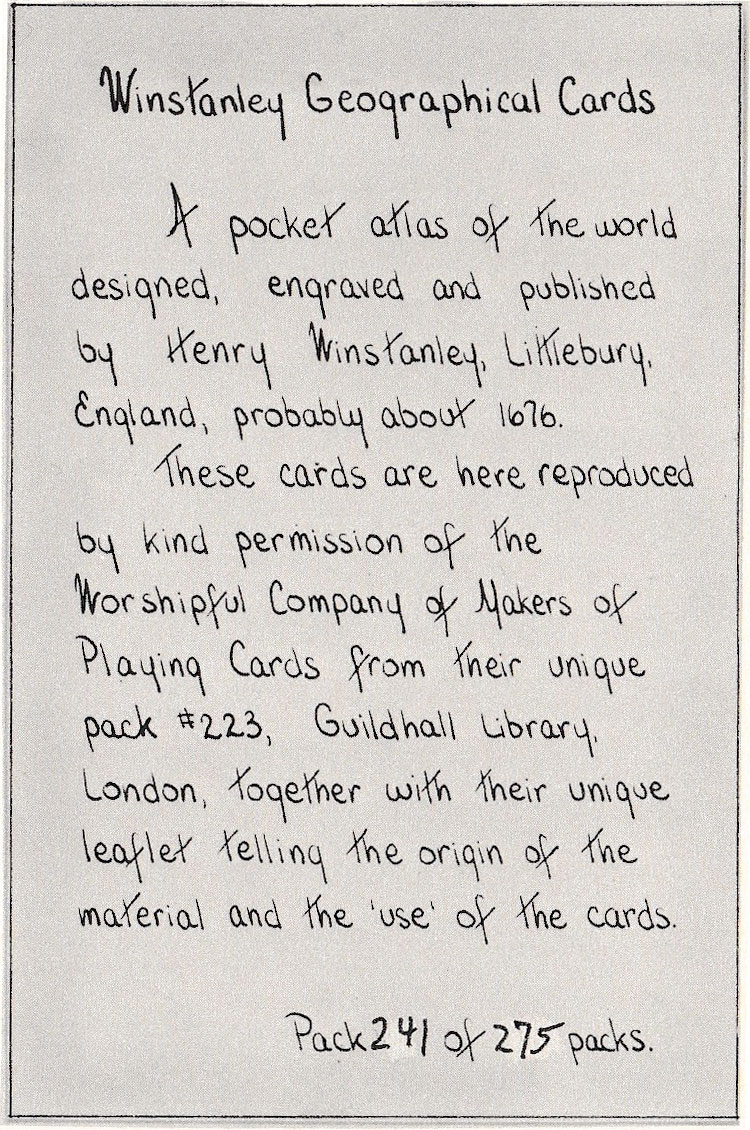 Winstanley Geographical Cards
A pocket atlas of the world
designed, engraved and published
by Henry Winstanley, Littlebury,
England, probably about 1676.
These cards are here reproduced
by kind permission of the
Worshipful Company of Makers of
Playing Cards from their unique
pack #223, Guildhall Library,
London, together with their unique
leaflet telling the origin of the
material and the 'use' of the cards.
Pack 241 of 275 packs.